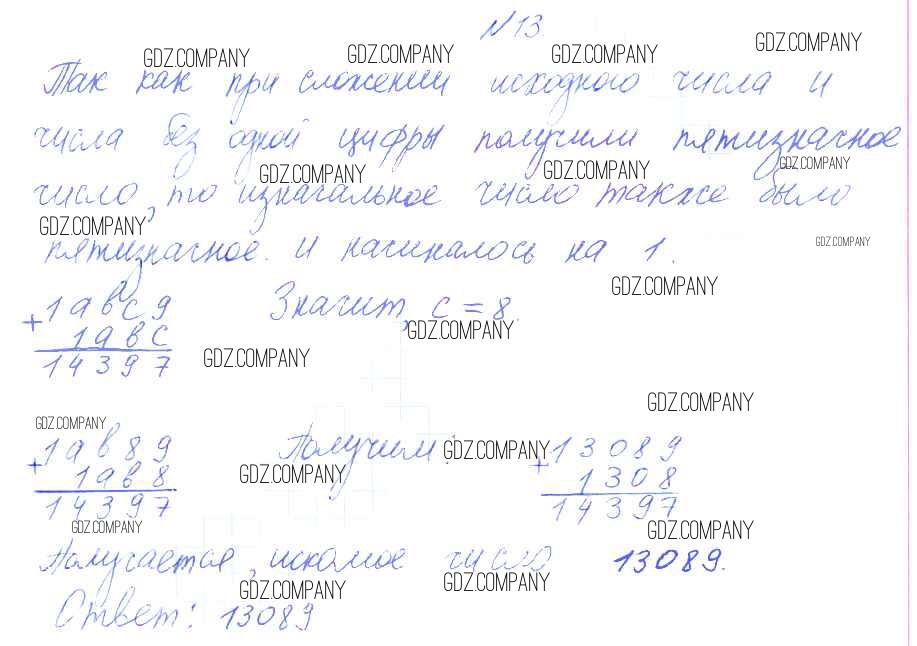 №13.
GDZ.COMPANY GDZ.COMPANY GDZ.COMPANY GDZ.COMPANY
Так как при сложении исходного числа и
числа без одной цифры получили пятизначное
GDZ.COMPANY GDZ.COMPANY GDZ.COMPANY
число, то изначальное число также было
GDZ.COMPANY
пятизначное. и начиналось на 1.
GDZ.COMPANY
GDZ.COMPANY
1авс9 Значит, с = 8.
+ 1авс
GDZ.COMPANY
14397
GDZ.COMPANY
GDZ.COMPANY
GDZ.COMPANY
1ав89 Получим: 13089
GDZ.COMPANY
+ 1ав8 + 1308
GDZ.COMPANY
14397 14397
GDZ.COMPANY GDZ.COMPANY
Получается, искомое число 13089.
GDZ.COMPANY GDZ.COMPANY
Ответ: 13089